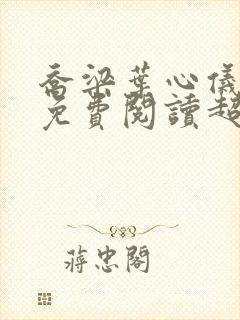 喬梁葉心儀
免費閱讀超
蔣忠閣